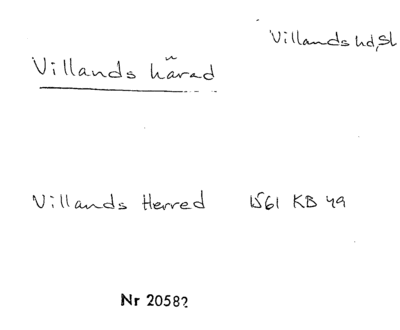 Villands hd, Sk
Villands härad
Villands Herred 1561 KB 49
Nr 20582